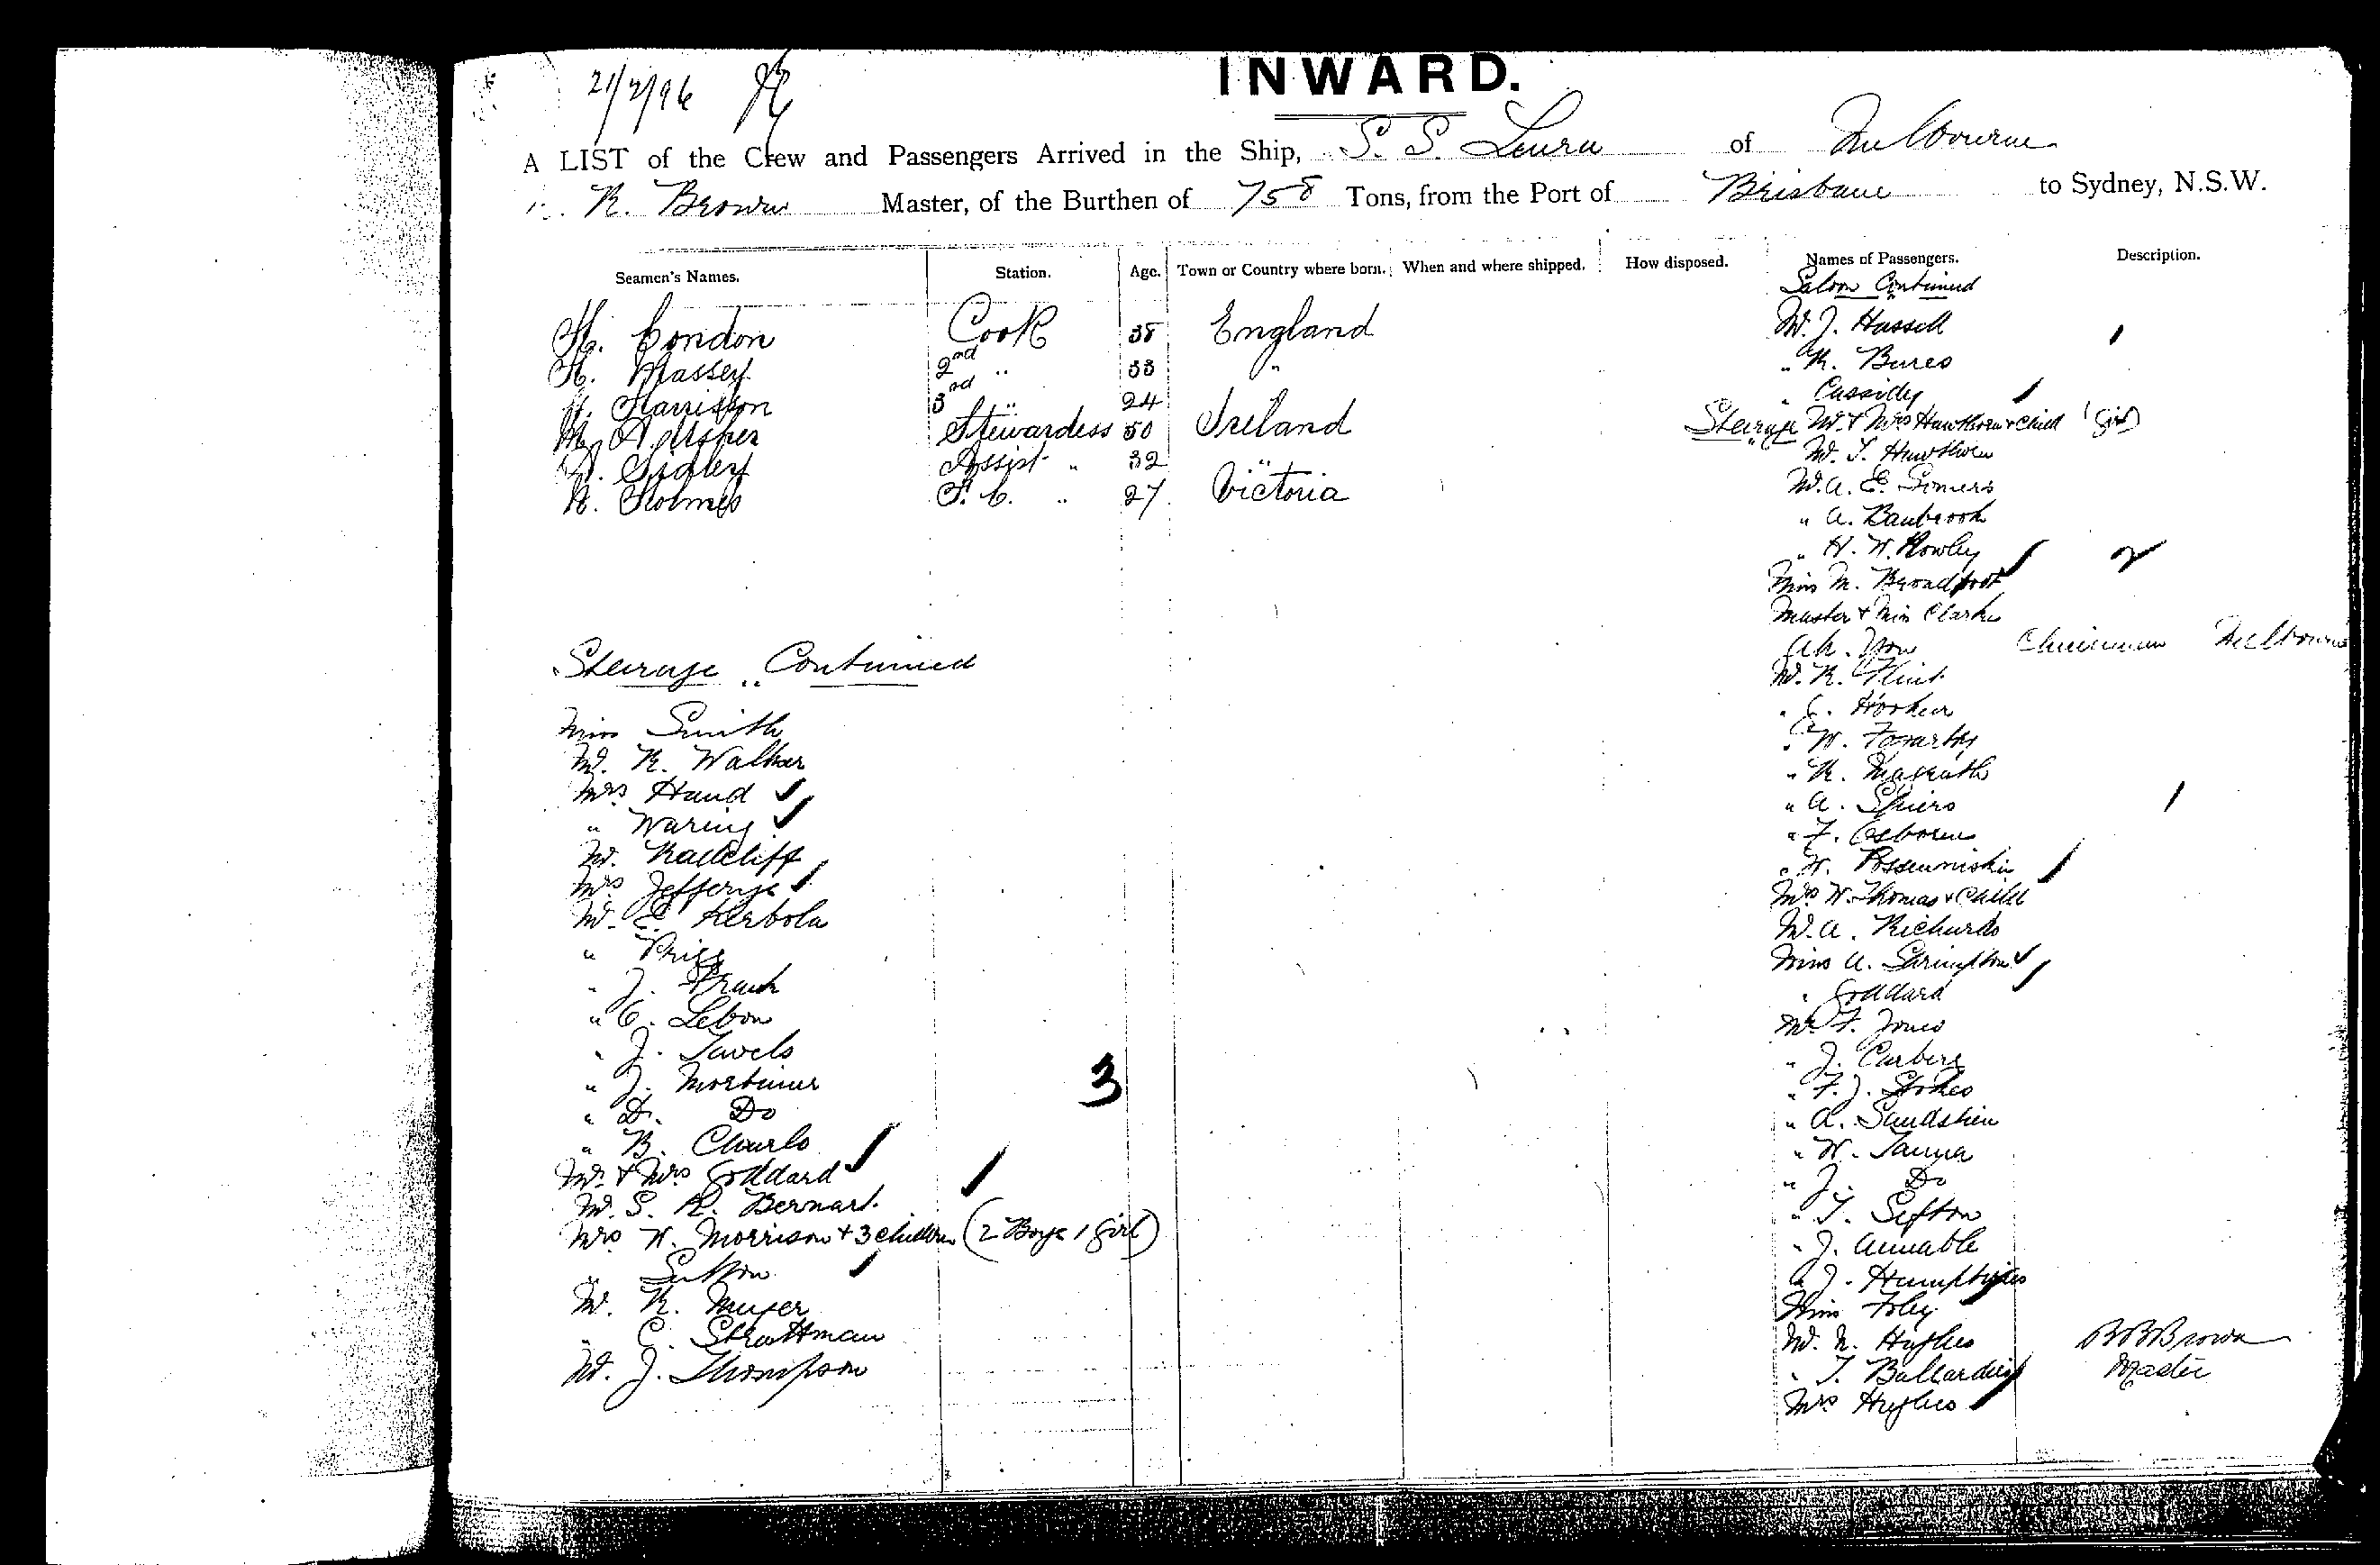 21/7/96
INWARD.
A LIST of the Crew and Passengers Arrived in the Ship, S. S. of Melbourne
R. Brown Master, of the Burthen of 758 Tons, from the Port of Brisbane to Sydney, N.S.W.
Seamen's Names. Station. Age. Town or Country where born. When and where shipped. How disposed. Names of Passengers. Description.
H. Condon Cook 38 England
H. Massey 2nd " 33 "
H. Harrison 3rd " 24
M. A. Usher Stewardess 50 Ireland
A. Sidley Assist " 32 "
A. Holmes F. C. " 27 Victoria
Steerage Continued
Miss Smith
Mr. R. Walker
Mrs Hand
" Waring
Mr. Radcliff
Mrs Jefferys
Mr. E. Kerbola
" Prigg
" J.
" C. Lebon
" J.
" J. Mortimer
" D. Do
" B. Charls
3
Mr. & Mrs Goddard
Mr. S. R. Bernart
Mrs W. Morrison & 3 children (2 Boys 1 Girl)
" Sutton
Mr. R. Meyer
" C. Strattman
Mr. J. Thompson
Saloon Continued
Mr. J. Hassell 1
" R. Bures
" Cassidy
Steerage Mr. & Mrs Hawthorn & Child (Girl)
Mr. T. Hawthorn
Mr. A. E. Somers
" A. Banbrook
" H. W. Rowley 2
Miss M. Broadfoot
Master & Miss Clarke
Ah. Chinaman Melbourne
Mr. R. Flint
" Hooker
" W. Fogarty
" R. Magrath
" A. Spiers 1
" F. Osborne
" W.
Mrs W. Thomas & Child
Mr. A. Richards
Miss A.
" Goddard
Mr F. Jones
" J. Carbery
" F. J. Stokes
" A.
" W.
" J. Do
" T. Sefton
" J. Annable
" J. Humphries
Miss Foley
Mr. N. Hughes
" T.
Mrs Hughes
Brown
Master